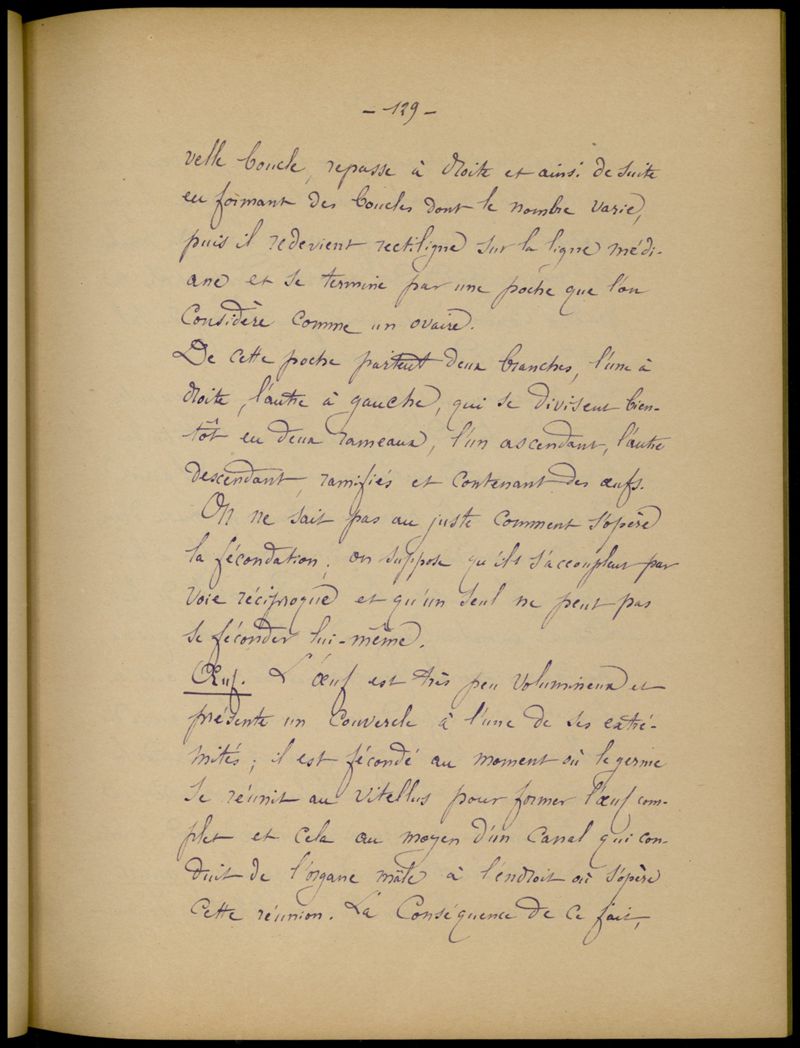 - 129 -
velle boucle, repasse à droite et ainsi de suite
en formant des boucles dont le nombre varie,
puis il redevient rectiligne sur la ligne médi-
ane et se termine par une poche que l'on
considère comme un ovaire.
De cette poche partent deux branches, l'une à
droite, l'autre à gauche, qui se divisent bien-
tôt en deux rameaux, l'un ascendant, l'autre
descendant, ramifiés et contenant des œufs.
On ne sait pas au juste comment s'opère
la fécondation; on suppose qu'ils s'accouplent par
voie réciproque et qu'un seul ne peut pas
se féconder lui-même.
Œuf. L'œuf est très peu volumineux et
présente un couvercle à l'une de ses extré-
mités; il est fécondé au moment où le germe
se réunit au vitellus pour former l'œuf com-
plet et cela au moyen d'un canal qui con-
duit de l'organe mâle à l'endroit où s'opère
cette réunion. La conséquence de ce fait,